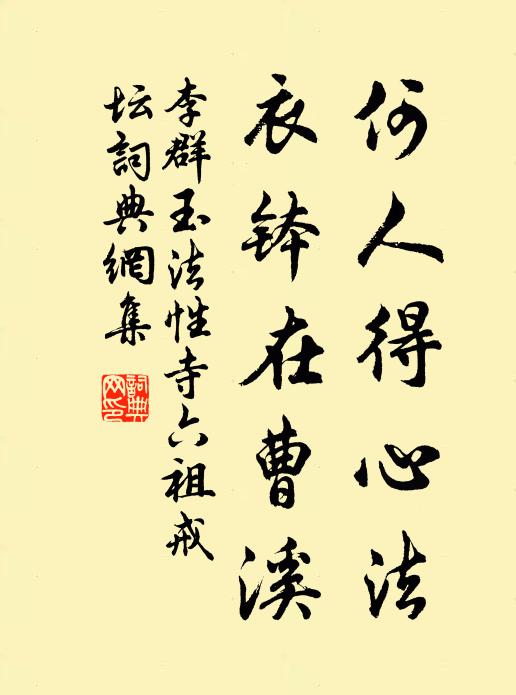 何人得心法
衣钵在曹溪
李群玉法性寺六祖戒
坛詞典網集
詞典网印